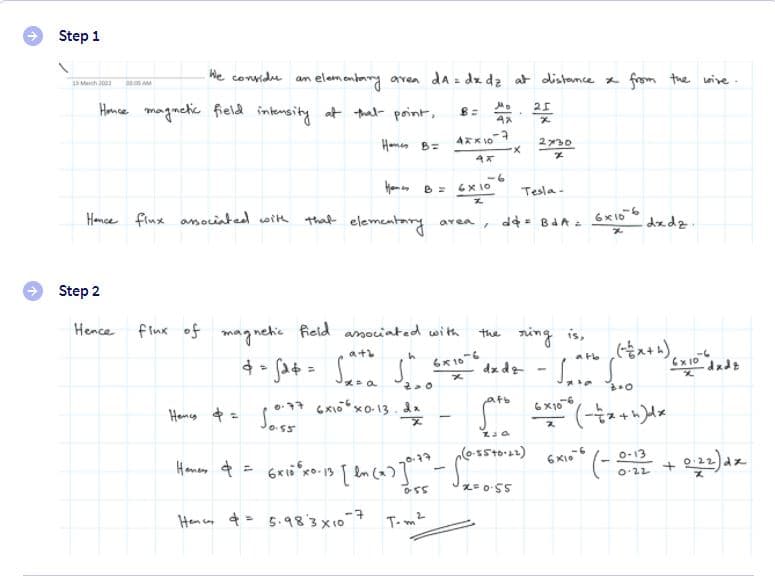 Step 1
13 March 2022 08:05 AM
We consider an elementary area dA = dx dz at distance x from the wire.
Hence magnetic field intensity at that point, B = μ₀/4π · 2I/x
Hence B = 4π×10⁻⁷/4π × 2×30/x
Hence B = 6×10⁻⁶/x Tesla.
Hence flux associated with that elementary area, dϕ = BdA = 6×10⁻⁶/x dxdz.
Step 2
Hence flux of magnetic field associated with the ring is,
ϕ = ∫dϕ = ∫_{x=a}^{a+b} ∫_{z=0}^{h} 6×10⁻⁶/x dxdz − ∫_{x=a}^{a+b} ∫_{z=0}^{(-h/b x+h)} 6×10⁻⁶/x dxdz
Hence ϕ = ∫_{0.55}^{0.77} 6×10⁻⁶×0.13 · dx/x − ∫_{x=a}^{a+b} 6×10⁻⁶/x (-h/b x + h)dx
Hence ϕ = 6×10⁻⁶×0.13 [ln(x)]_{0.55}^{0.77} − ∫_{x=0.55}^{(0.55+0.22)} 6×10⁻⁶ (- 0.13/0.22 + 0.22/x)dx
Hence ϕ = 5.983×10⁻⁷ T·m²